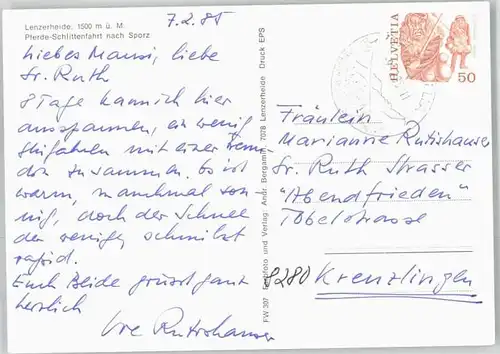 Lenzerheide, 1500 m ü. M.
Pferde-Schlittenfahrt nach Sporz
7.2.85
Liebes Mausi, liebe
Sr. Ruth
8 Tage kann ich hier
ausspannen, ein wenig
Skifahren mit einer
zusammen. Es ist
warm, manchmal son-
nig, doch der Schnee
der wenige, schmilzt
rapid.
Euch Beide grüsst ganz
herzlich
Rutishauser
FW 307 Foto und Verlag: Andr. Bergamin, 7078 Lenzerheide Druck EPS
HELVETIA
50
Fräulein
Marianne Rutishauser
Sr. Ruth Strasser
"Abendfrieden"
Tobelstrasse
8280 Kreuzlingen